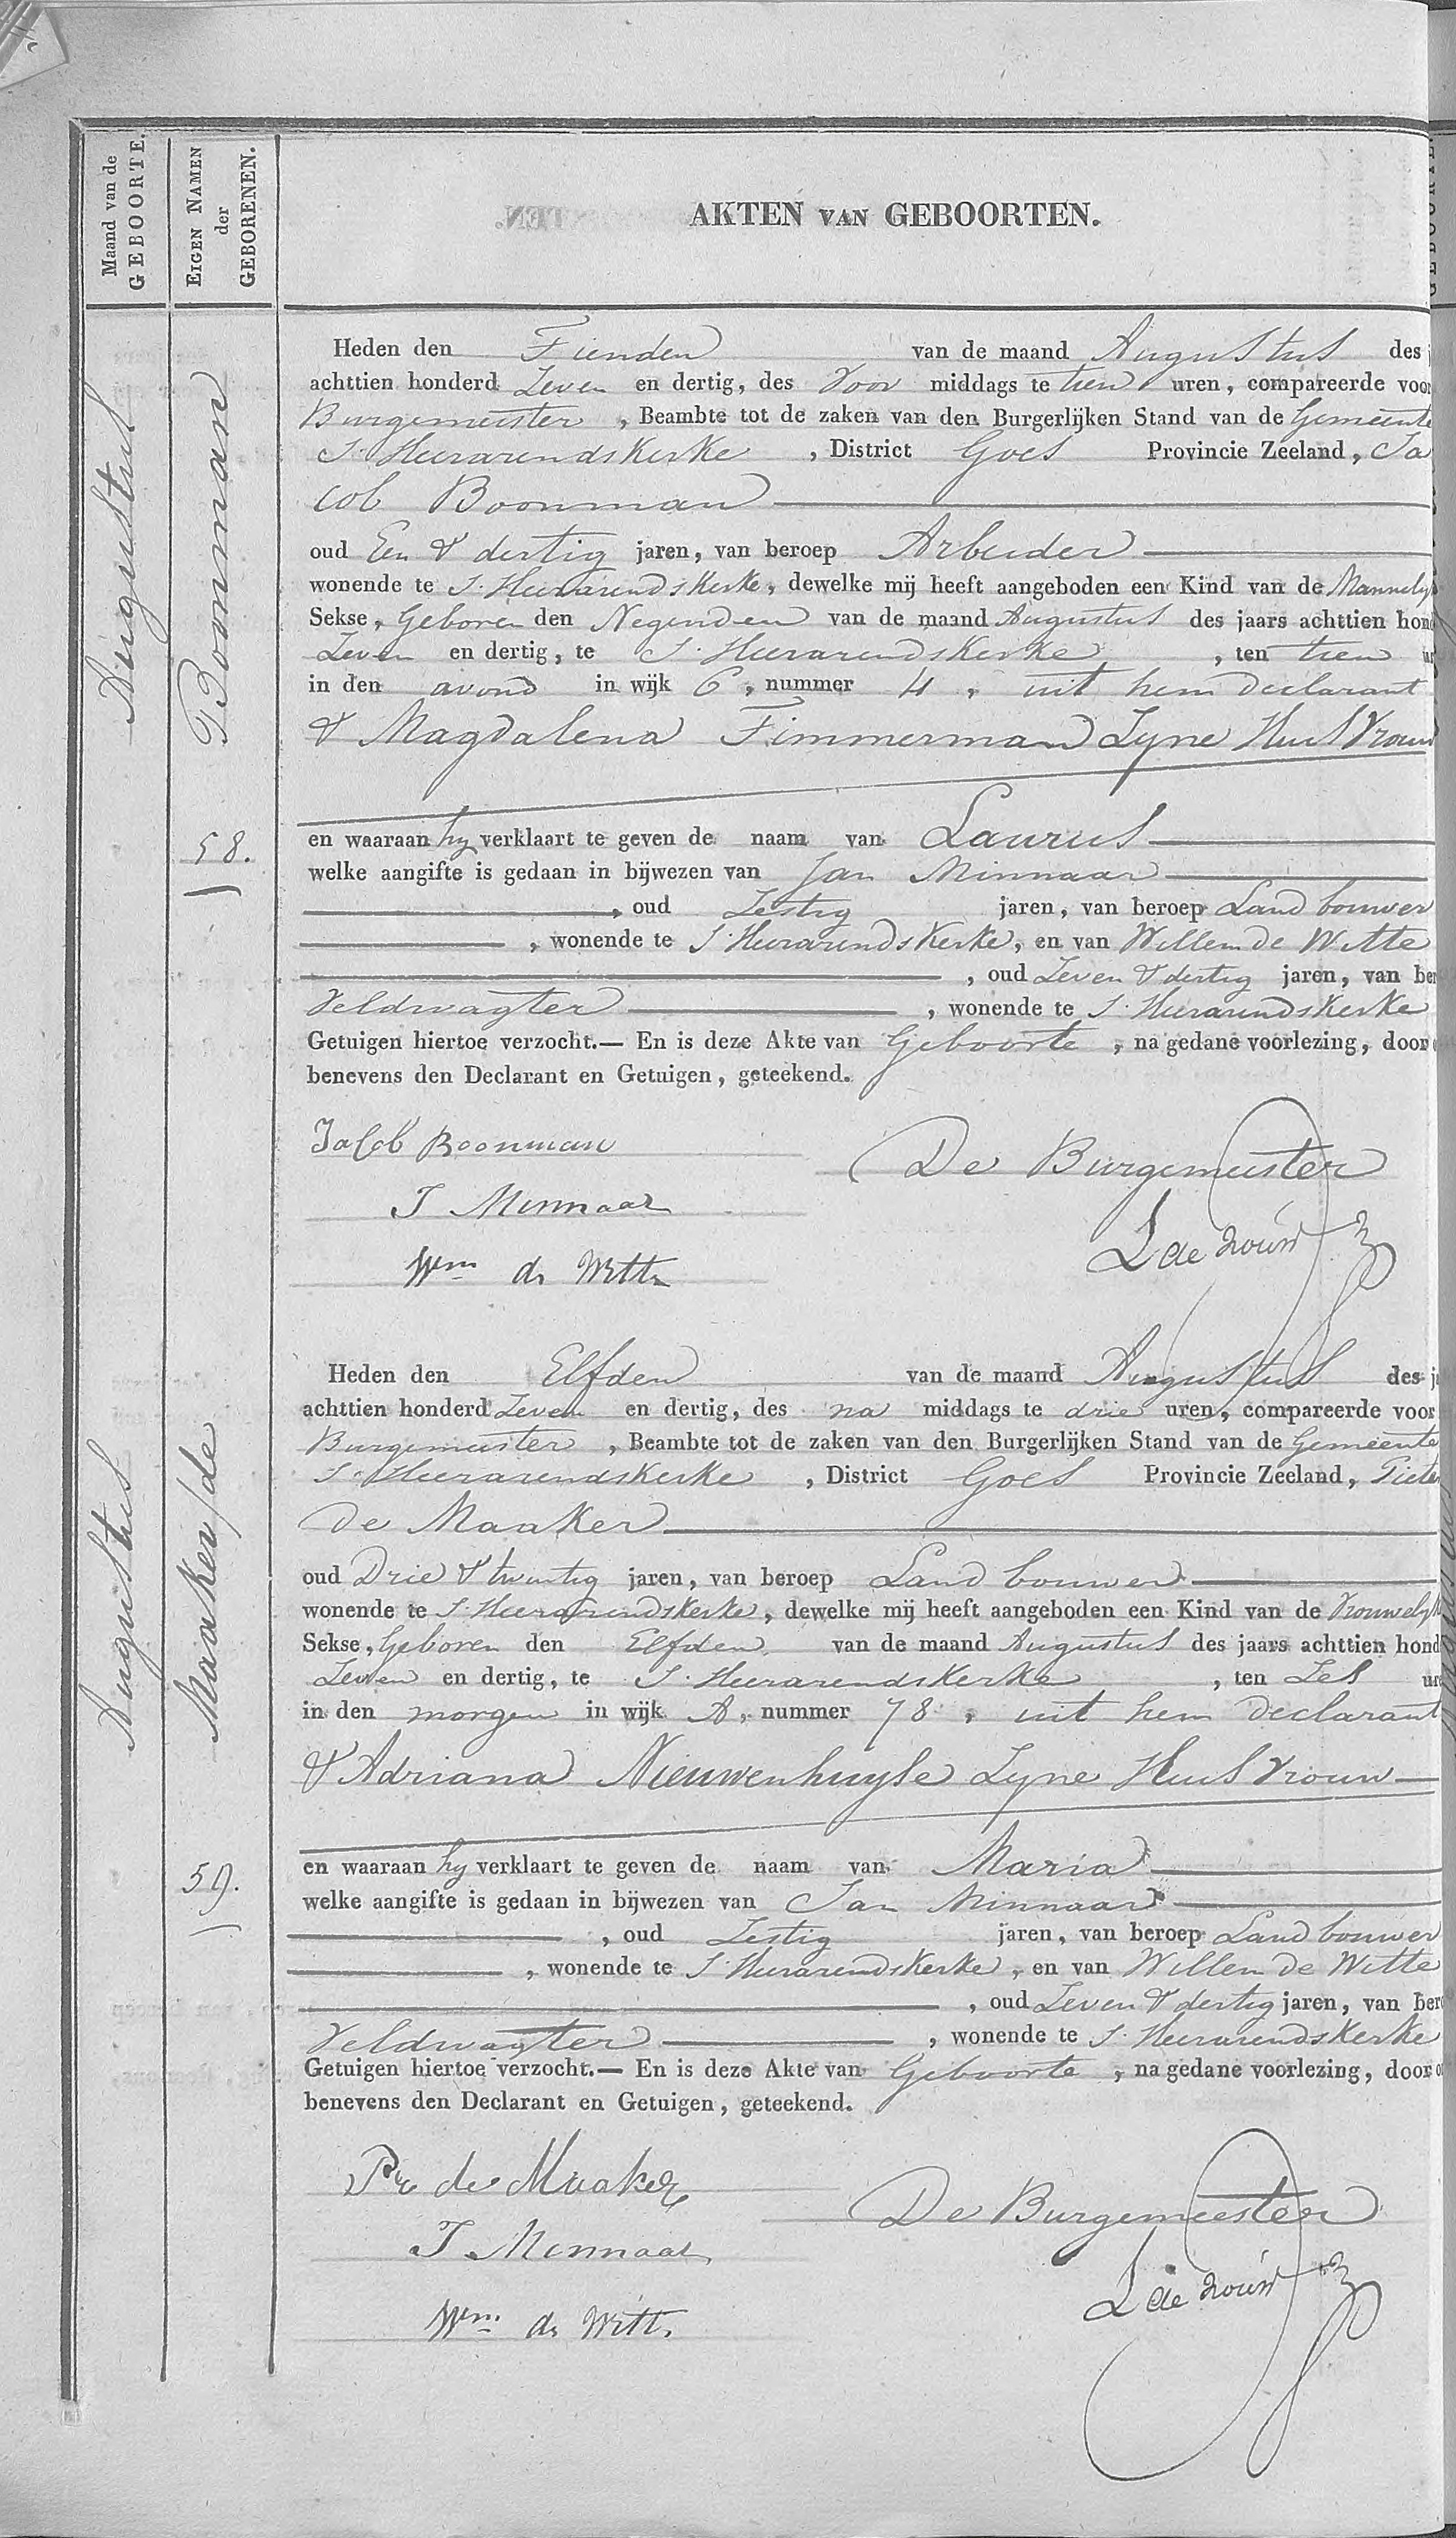 Maand van de
GEBOORTE.
EIGEN NAMEN
der
GEBORENEN.
AKTEN VAN GEBOORTEN.
Augustus
Boonman
58.
Heden den Tienden van de maand Augustus des
achttien honderd Zeven en dertig, des Voor middags te tien uren, compareerde voor
Burgemeester, Beambte tot de zaken van den Burgerlijken Stand van de Gemeente
S. Heerarendskerke, District Goes Provincie Zeeland, Ja
cob Boonman
oud Een & dertig jaren, van beroep Arbeider
wonende te S. Heerarendskerke, dewelke mij heeft aangeboden een Kind van de Mannelyk
Sekse, Geboren den Negenden van de maand Augustus des jaars achttien hond
Zeven en dertig, te S. Heerarendskerke, ten tien ur
in den avond in wijk C, nummer 4, uit hem declarant
& Magdalena Timmerman Zyne Huisvrouw
en waaraan hy verklaart te geven de naam van Laurus
welke aangifte is gedaan in bijwezen van Jan Minnaar
, oud Zestig jaren, van beroep Landbouwer
, wonende te S. Heerarendskerke, en van Willem de Witte
, oud Zeven & dertig jaren, van ber
Veldwagter, wonende te S. Heerarendskerke
Getuigen hiertoe verzocht.— En is deze Akte van Geboorte, na gedane voorlezing, door
benevens den Declarant en Getuigen, geteekend.
Jacob Boonman
De Burgemeester
J Minnaar
Wm de Witte
Augustus
Maaker / de
59.
Heden den Elfden van de maand Augustus des j
achttien honderd Zeven en dertig, des na middags te drie uren, compareerde voor
Burgemeester, Beambte tot de zaken van den Burgerlijken Stand van de Gemeente
S. Heerarendskerke, District Goes Provincie Zeeland, Pieter
de Maaker
oud Drie & twintig jaren, van beroep Landbouwer
wonende te S. Heerarendskerke, dewelke mij heeft aangeboden een Kind van de Vrouwelyk
Sekse, Geboren den Elfden van de maand Augustus des jaars achttien hond
Zeven en dertig, te S. Heerarendskerke, ten Zes ur
in den morgen in wijk A, nummer 78, uit hem declarant
& Adriana Nieuwenhuyse Zyne Huisvrouw
en waaraan hy verklaart te geven de naam van Maria
welke aangifte is gedaan in bijwezen van Jan Minnaar
, oud Zestig jaren, van beroep Landbouwer
, wonende te S. Heerarendskerke, en van Willem de Witte
, oud Zeven & dertig jaren, van ber
Veldwagter, wonende te S. Heerarendskerke
Getuigen hiertoe verzocht.— En is deze Akte van Geboorte, na gedane voorlezing, door
benevens den Declarant en Getuigen, geteekend.
Pr de Maaker
De Burgemeester
J Minnaar
Wm de Witt.